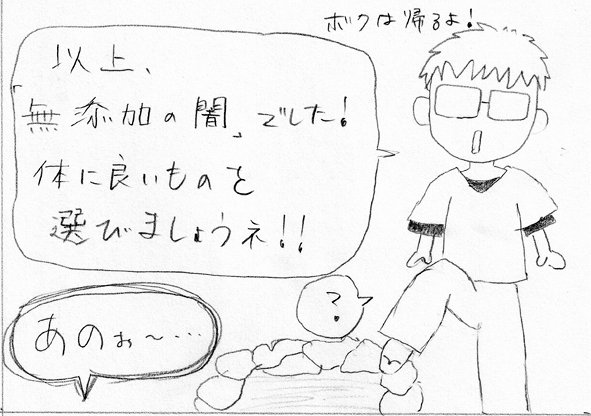 ボクは帰るよ!
以上、
「無添加の闇」でした!
体に良いものを
選びましょうネ!!
?
あのぉ〜…